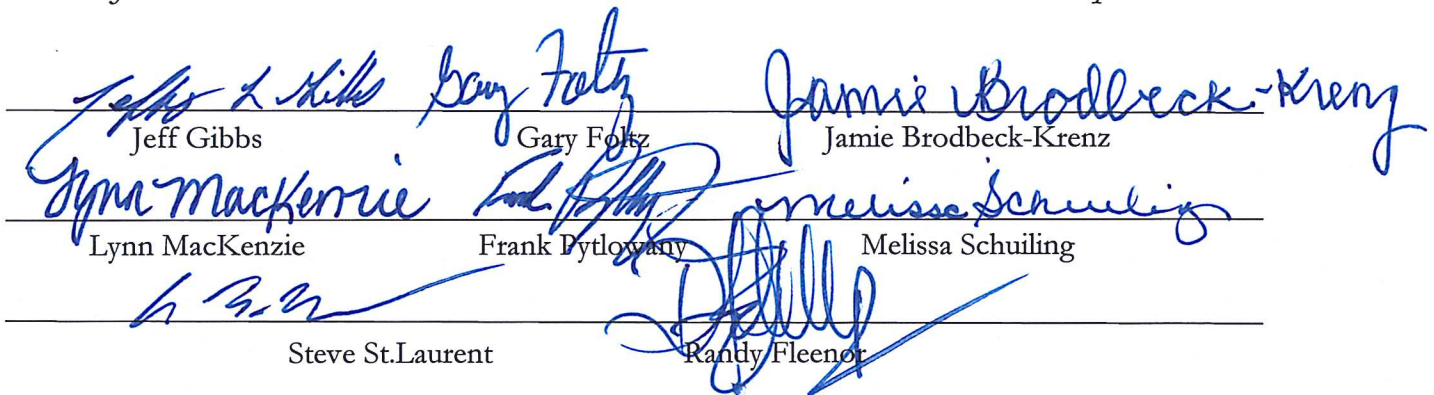 Jeffr L Gibbs Gary Foltz Jamie Brodbeck-Krenz
Jeff Gibbs Gary Foltz Jamie Brodbeck-Krenz
Lynn MacKenzie Melissa Schuiling
Lynn MacKenzie Frank Pytlowany Melissa Schuiling
Steve St.Laurent Randy Fleenor